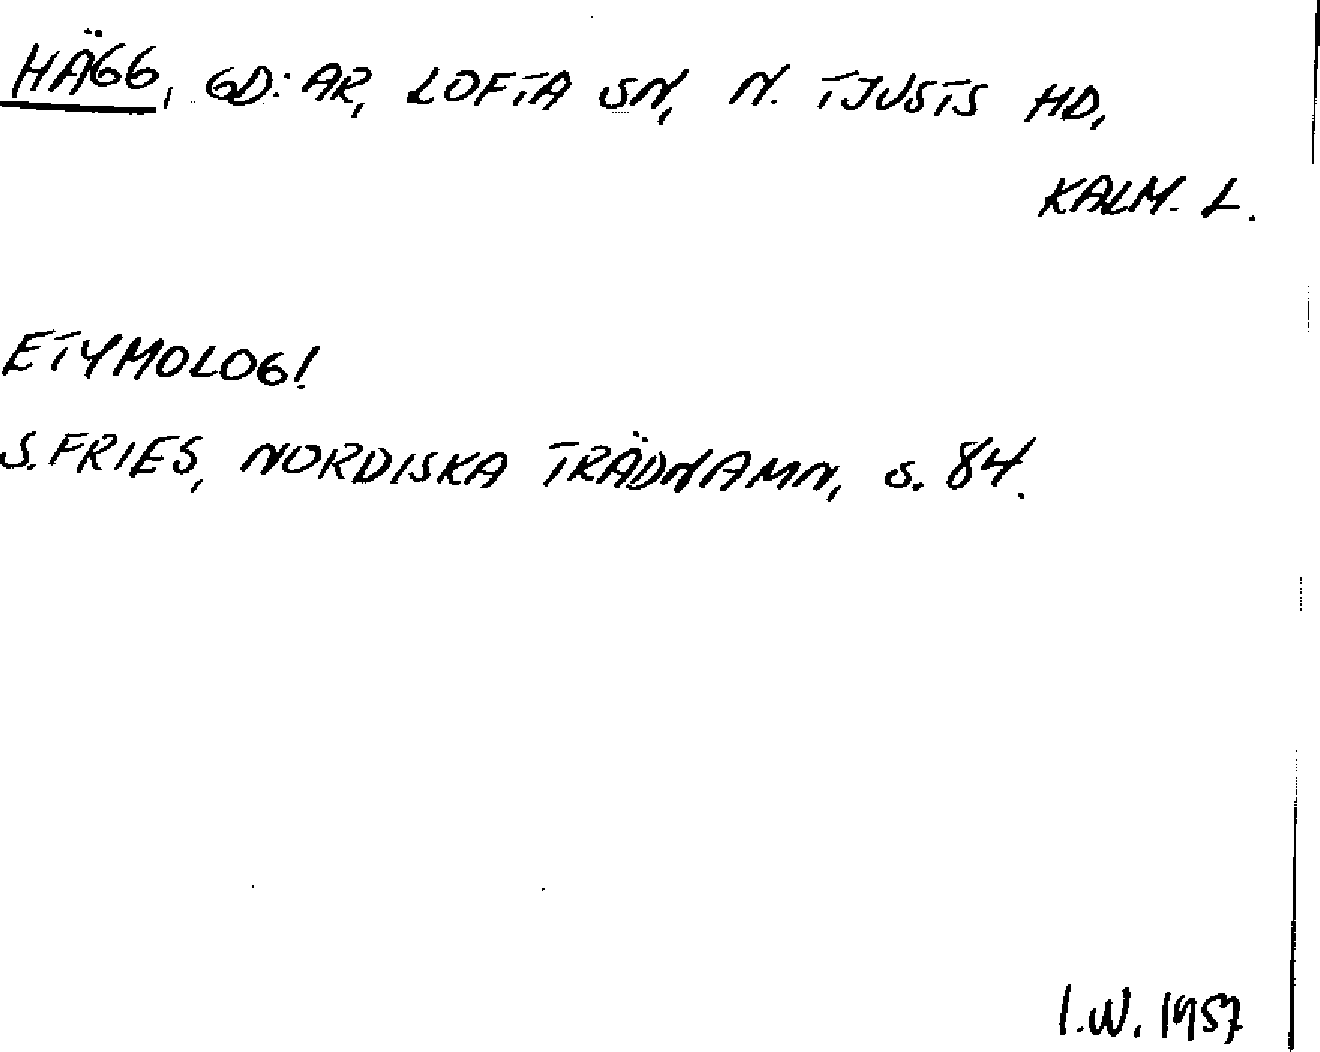 HÄGG, GD:AR, LOFTA SN, N. TJUSTS HD,
KALM. L.
ETYMOLOGI
S. FRIES, NORDISKA TRÄDNAMN, S. 84.
I.W. 1957